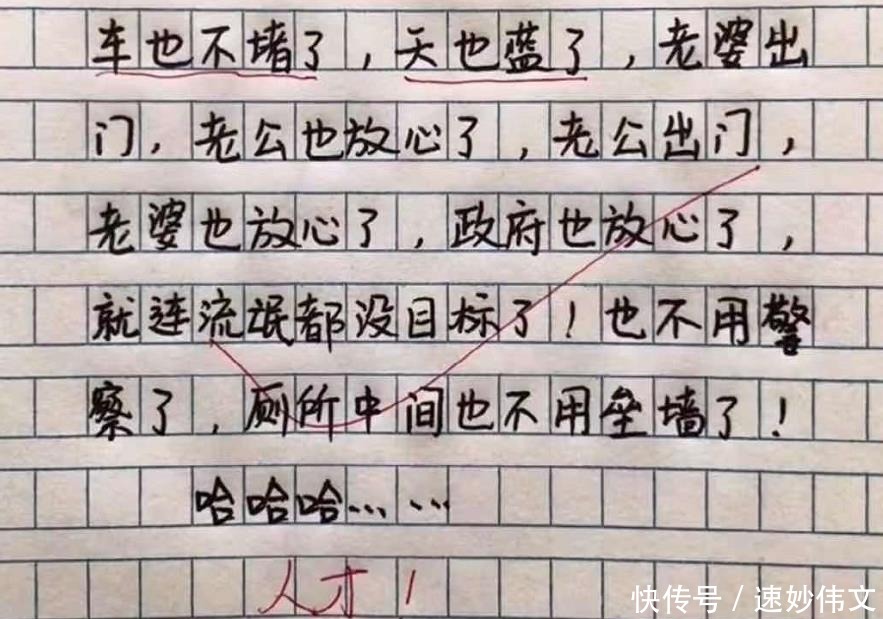 车也不堵了，天也蓝了，老婆出
门，老公也放心了，老公出门，
老婆也放心了，政府也放心了，
就连流氓都没目标了！也不用警
察了，厕所中间也不用垒墙了！
哈哈哈……
人才！
快传号 / 速妙伟文